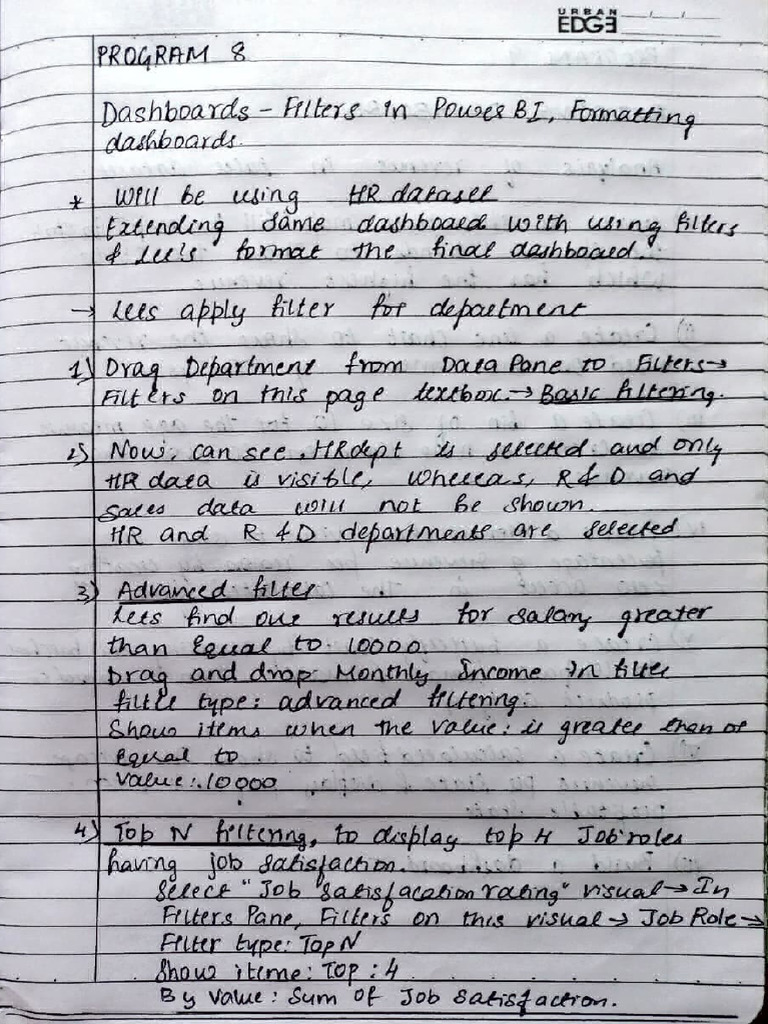 URBAN
EDGE
PROGRAM 8
Dashboards - Filters in Power BI, Formatting
dashboards.
* Will be using HR dataset
Extending same dashboard with using filters
& let's format the final dashboard.
→ Lets apply filter for department
1) Drag Department from Data Pane to Filters→
Filters on this page textbox → Basic filtering.
2) Now, can see HR dept is selected and only
HR data is visible, whereas, R & D and
Sales data will not be shown.
HR and R & D departments are selected
3) Advanced filter
Lets find out results for salary greater
than Equal to 10000.
Drag and drop Monthly Income In filter
filter type: advanced filtering.
Show items when the value: is greater than or
equal to
Value: 10000
4) Top N filtering, to display top 4 Job roles
having job satisfaction.
Select "Job satisfacation rating" visual → In
Filters Pane, Filters on this visual → Job Role →
Filter type: Top N
Show iteme: Top : 4
By Value: Sum of Job Satisfaction.